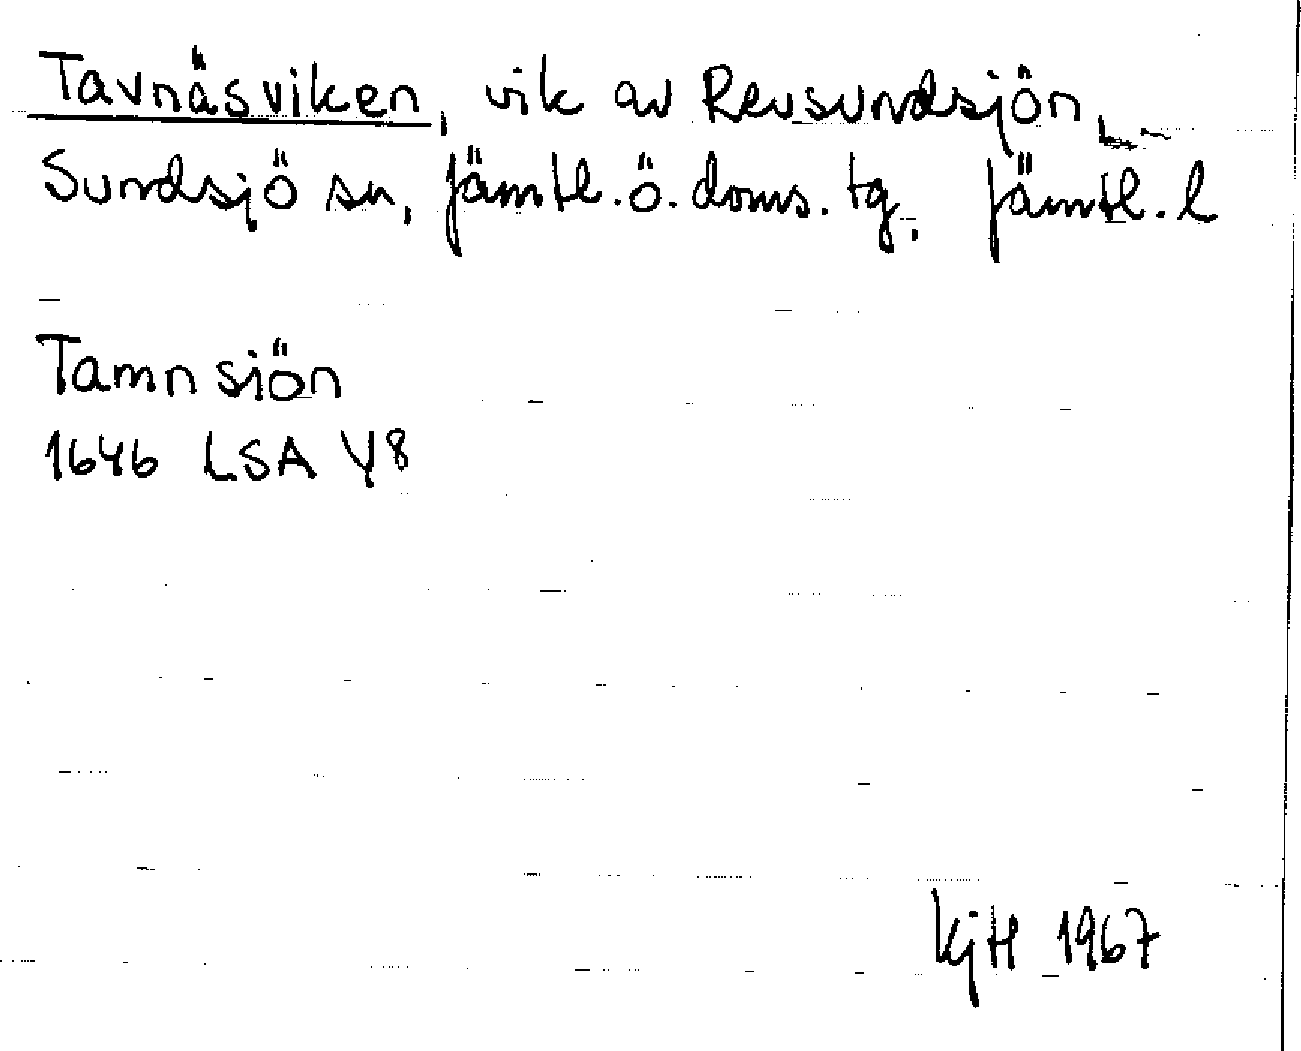 Tavnäsviken, vik av Revsundsjön,
Sundsjö sn, Jämtl. ö. doms. tg, Jämtl. l
Tamnsjön
1646 LSA Y8
KjH 1967